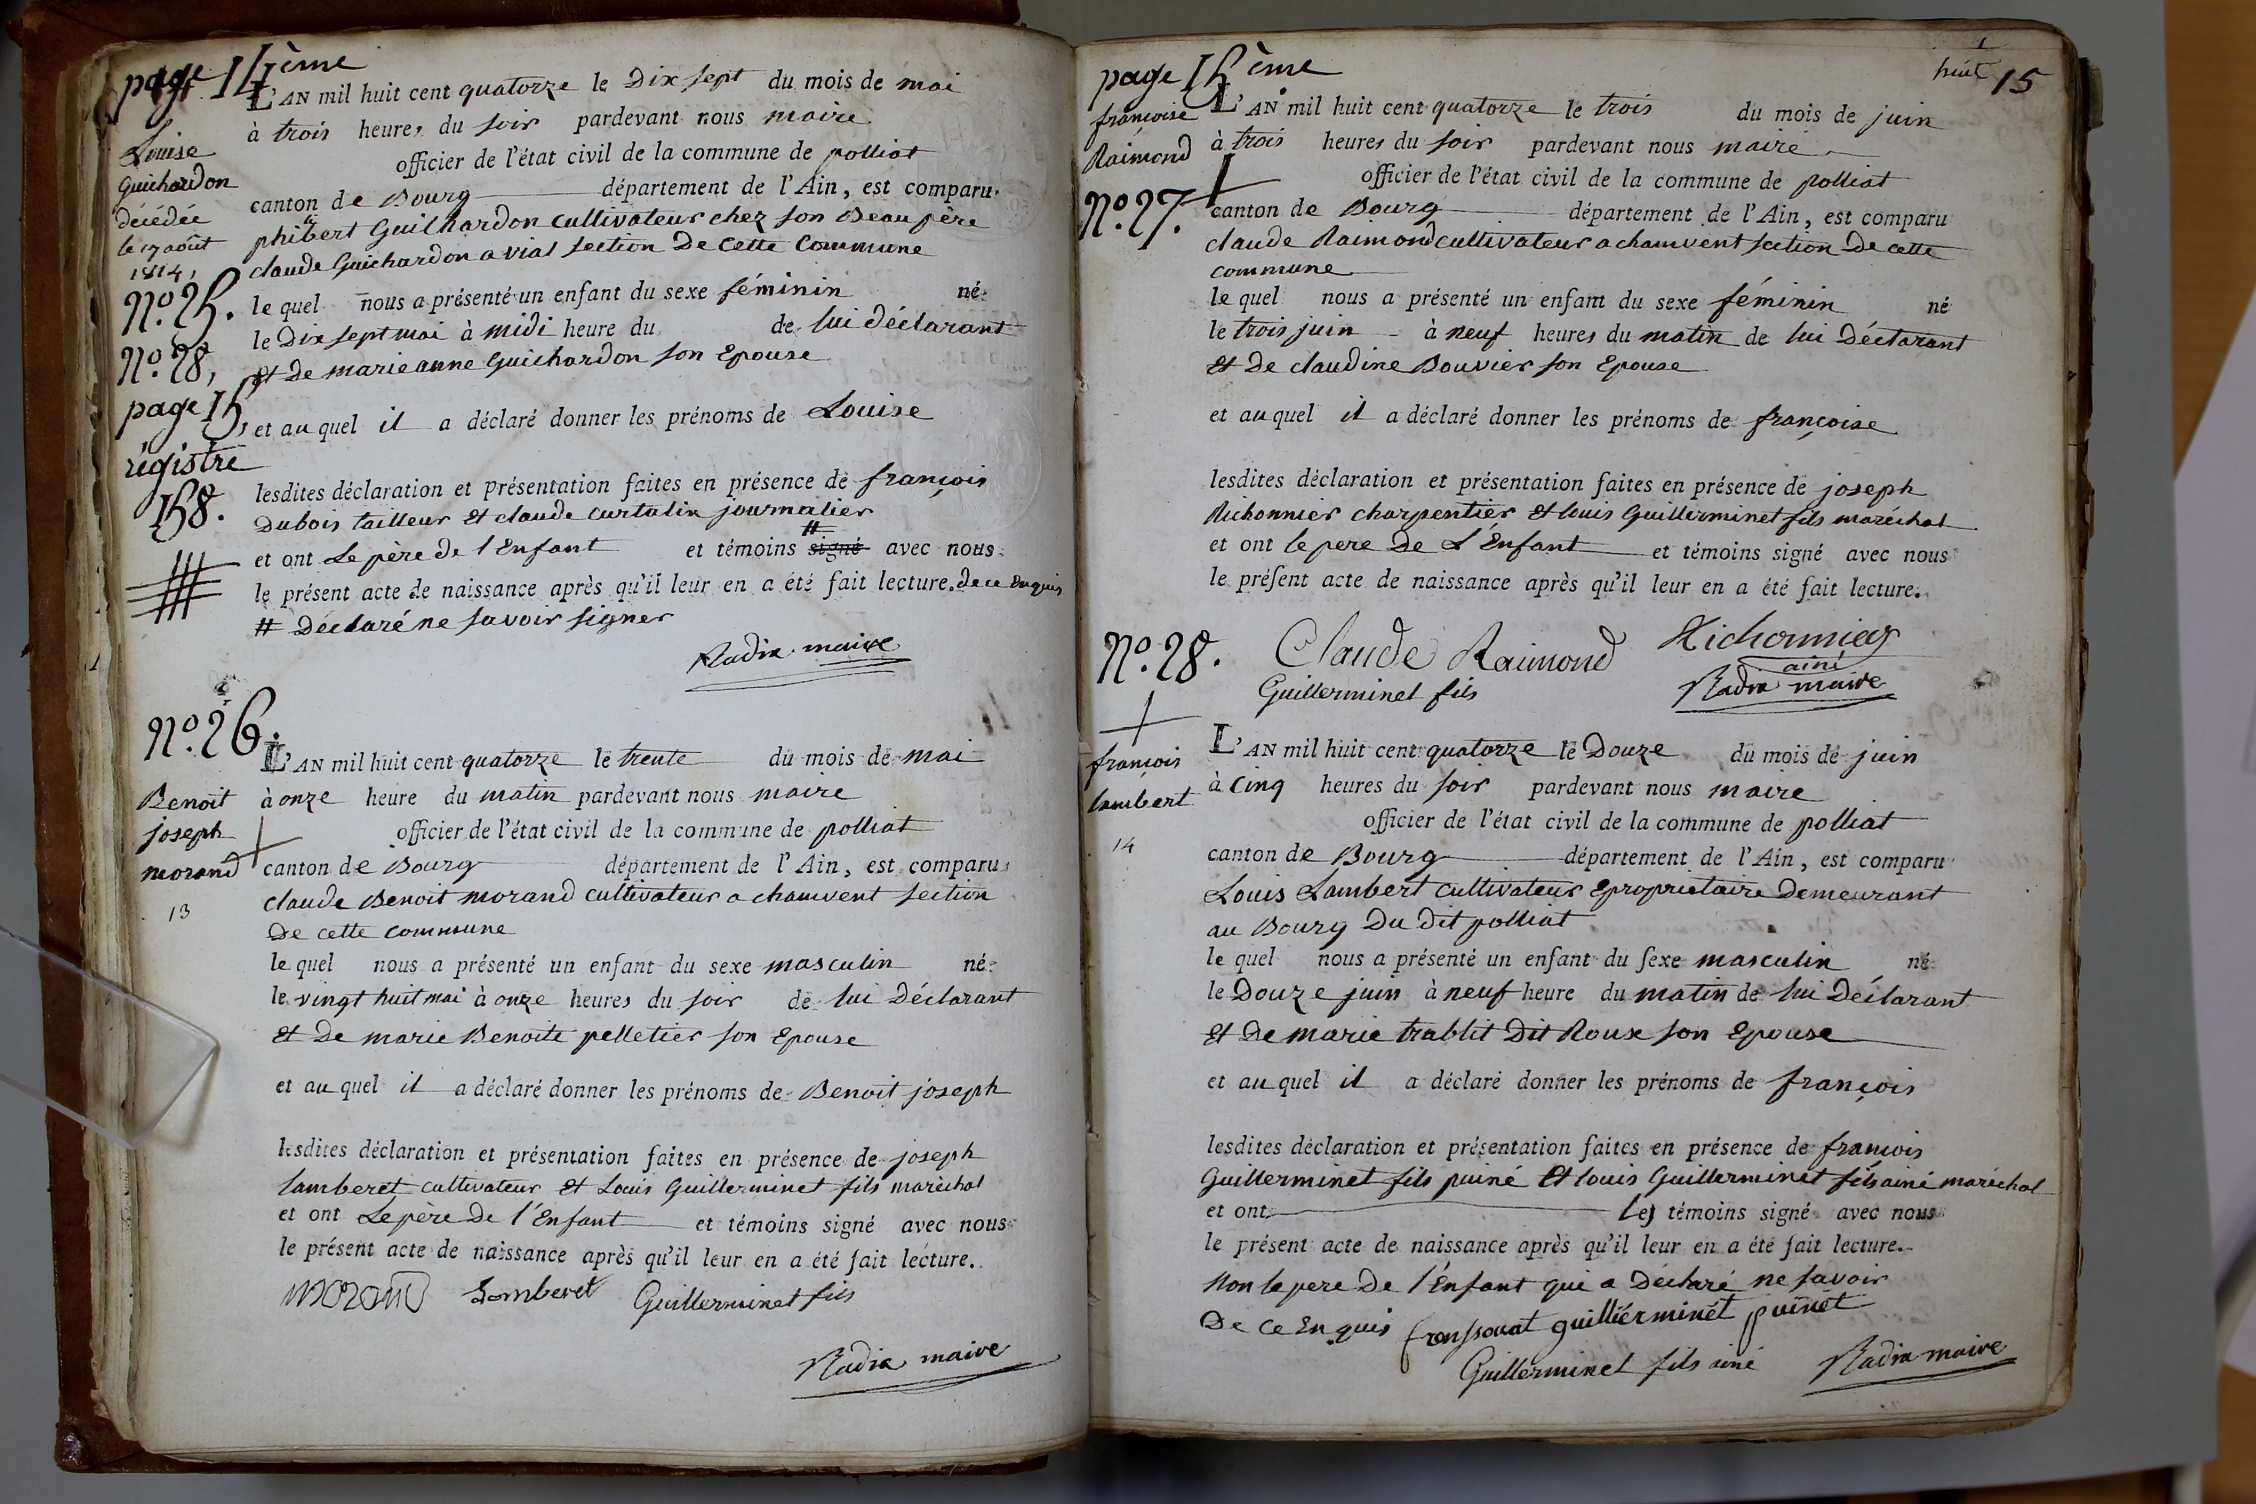 page 14ème
L'AN mil huit cent quatorze le Dix sept du mois de mai
à trois heures du soir pardevant nous maire
officier de l'état civil de la commune de polliat
canton de Bourg département de l'Ain, est comparu
phibert Guichardon cultivateur chez son Beau père
claude Guichardon a vial section De cette commune
le quel nous a présenté un enfant du sexe féminin né
le Dix sept mai à midi heure du de lui déclarant
et De marie anne Guichardon son Epouse
et au quel il a déclaré donner les prénoms de Louise
lesdites déclaration et présentation faites en présence de françois
Dubois tailleur et claude curtalin journalier
et ont Le père de l'Enfant et témoins signé # avec nous
le présent acte de naissance après qu'il leur en a été fait lecture. de ce Enquis
# Déclaré ne savoir signer
Radix maire
Louise
Guichardon
décédée
le 17 août
1814,
N.o 25.
N.o 28,
page 15,
régistre
158.
N.o 26.
Benoit
joseph
morand
13
L'AN mil huit cent quatorze le trente du mois de mai
à onze heure du matin pardevant nous maire
officier de l'état civil de la commune de polliat
canton de Bourg département de l'Ain, est comparu
claude Benoit morand cultivateur a chamvent section
De cette commune
le quel nous a présenté un enfant du sexe masculin né
le vingt huit mai à onze heures du soir de lui Déclarant
et De marie Benoite pelletier son Epouse
et au quel il a déclaré donner les prénoms de Benoit joseph
lesdites déclaration et présentation faites en présence de joseph
lamberet cultivateur et Louis Guillerminet fils maréchal
et ont Le père De l'Enfant et témoins signé avec nous
le présent acte de naissance après qu'il leur en a été fait lecture.
morand Lamberet Guillerminet fils
Radix maire
page 15ème
huit 15
françoise
Raimond
N.o 27.
L'AN mil huit cent quatorze le trois du mois de juin
à trois heures du soir pardevant nous maire
officier de l'état civil de la commune de polliat
canton de Bourg département de l'Ain, est comparu
claude Raimond cultivateur a chamvent section De cette
commune
le quel nous a présenté un enfant du sexe féminin né
le trois juin à neuf heures du matin de lui Déclarant
et De claudine Bouvier son Epouse
et au quel il a déclaré donner les prénoms de françoise
lesdites déclaration et présentation faites en présence de joseph
Richonnier charpentier et louis Guillerminet fils maréchal
et ont le pere De L'Enfant et témoins signé avec nous
le présent acte de naissance après qu'il leur en a été fait lecture.
Claude Raimond Richonnier
ainé
Guillerminet fils Radix maire
N.o 28.
françois
lambert
14
L'AN mil huit cent quatorze le Douze du mois de juin
à cinq heures du soir pardevant nous maire
officier de l'état civil de la commune de polliat
canton de Bourg département de l'Ain, est comparu
Louis Lambert cultivateur Epropriétaire Demeurant
au Bourg Du dit polliat
le quel nous a présenté un enfant du sexe masculin né
le Douze juin à neuf heure du matin de lui Déclarant
et De marie trablit Dit Roux son Epouse
et au quel il a déclaré donner les prénoms de françois
lesdites déclaration et présentation faites en présence de françois
Guillerminet fils puiné et louis Guillerminet fils ainé maréchal
et ont les témoins signé avec nous
le présent acte de naissance après qu'il leur en a été fait lecture.
Non le pere De l'Enfant qui a Déclaré ne savoir
De ce Enquis fronssouat guilliérminét puinét
Guillerminet fils ainé Radix maire